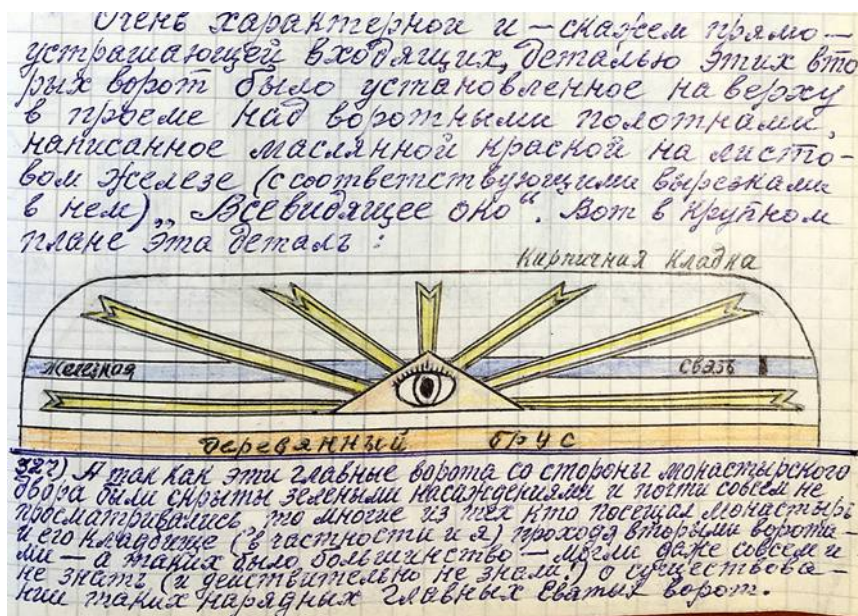 Очень характерной и — скажем прямо —
устрашающей входящих, деталью этих вто
рых ворот было установленное на верху
в проеме над воротными полотнами,
написанное маслянной краской на листо-
вом железе (с соответствующими вырезками
в нем) „Всевидящее око“. Вот в крупном
плане эта деталь:
Кирпичная кладка
Железная связь
Деревянный брус
327) А так как эти главные ворота со стороны монастырского
двора были скрыты зелеными насаждениями и почти совсем не
просматривались, то многие из тех кто посещал монастырь
и его кладбище (в частности и я) проходя вторыми ворота-
ми — а таких было большинство — могли даже совсем и
не знать (и действительно не знали) о существова-
нии таких нарядных главных Святых ворот.